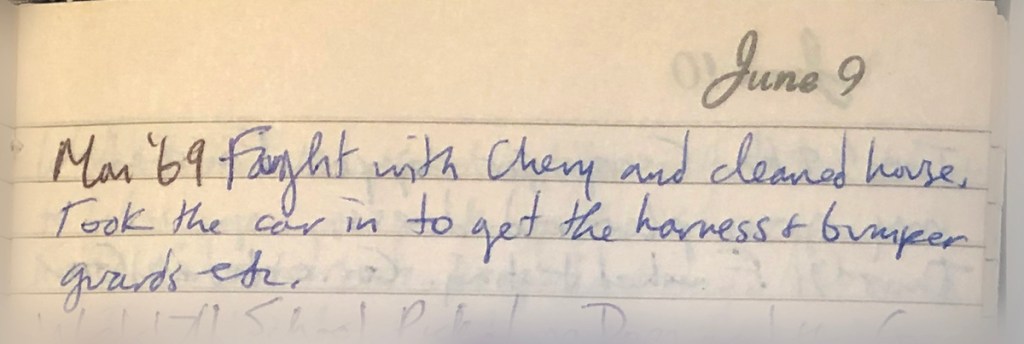 June 9
Mon '69 Fought with Cheryl and cleaned house.
Took the car in to get the harness & bumper
guards etc.